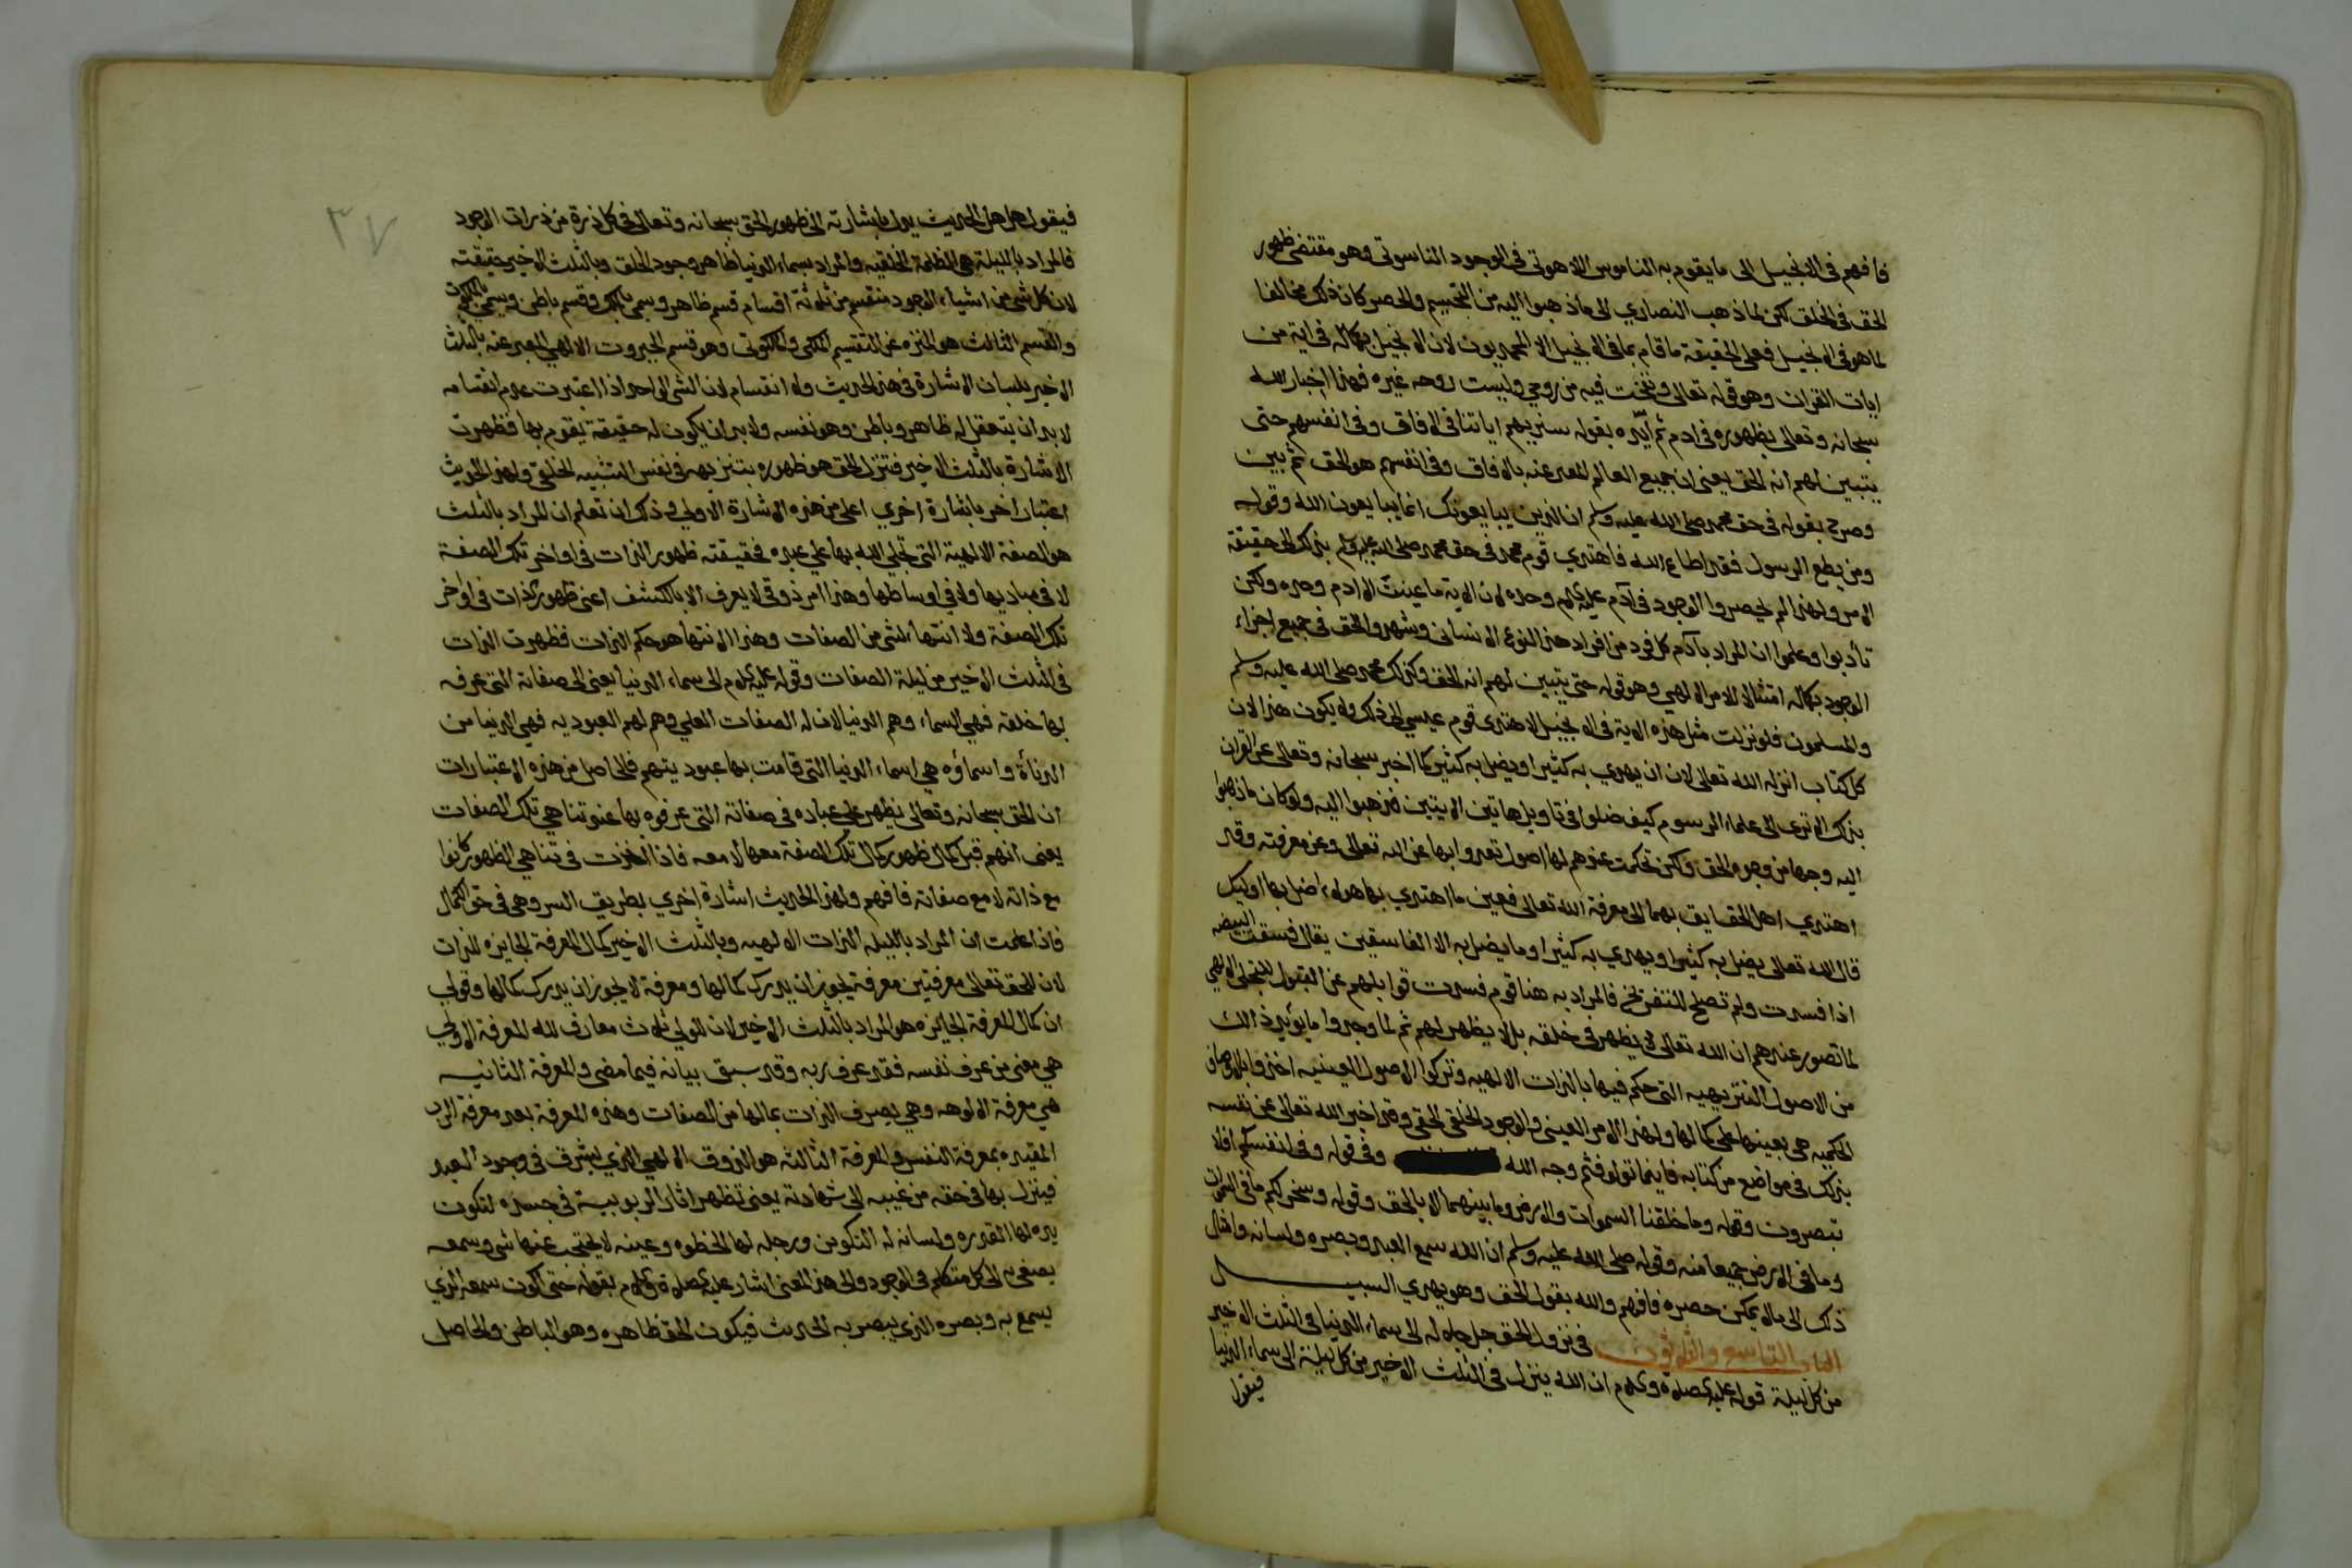 فافهم في الانجيل الى ما يقوم به الناموس اللاهوتي في الوجود الناسوتي وهو مقتضى ظهور
الحق في الخلق لكن لما ذهب النصاري الى ما ذهبوا اليه من التجسيم والحصر كان ذلك مخالفا
لما هو في الانجيل فعلى الحقيقة ما قام بما في الانجيل الا المحمديون لان الانجيل بكماله في اية من
ايات القران وهو قوله تعالى ونفخت فيه من روحي وليست روحه غيره فهذا اخبار الله
سبحانه وتعالى بظهوره في ادم ثم ايّده بقوله سنريهم اياتنا في الافاق وفي انفسهم حتى
يتبين لهم انه الحق يعني ان جميع العالم المعبر عنه بالافاق وفي انفسهم هو الحق ثم بين
وصرح بقوله في حق محمد صلى الله عليه وسلم ان الذين يبايعونك انما يبايعون الله وقوله
ومن يطع الرسول فقد اطاع الله فاهتدي قوم محمد في حق محمد صلى الله عليه وسلم بذلك الى حقيقة
الامر ولهذا لم يحصروا الوجود في آدم عليه السلام وحده لان الاية ما عينت الا ادم وحده ولكن
تأدبوا وعلموا ان المراد بآدم كل فرد من افراد هذا النوع الانساني وشهدوا الحق في جميع اجزاء
الوجود بكماله امتثالا للامر الالهي وهو قوله حتى يتبين لهم انه الحق وكذلك محمد صلى الله عليه وسلم
والمسلمون فلو نزلت مثل هذه الاية في الانجيل لاهتدى قوم عيسي الى ذلك ولا يكون هذا لان
كل كتاب انزله الله تعالى لابد ان يهدي به كثيرا ويضل به كثير كما اخبر سبحانه وتعالى عن القران
بذلك الا ترى الى علماء الرسوم كيف ضلوا في تاويل هاتين الايتين فذهبوا اليه ولو كان ما ذهبوا
اليه وجها من وجوه الحق ولكن تحكمت عندهم لها اصول تعبدوا بها عن الله تعالى وعن معرفته وقد
اهتدي اهل الحقايق بهما الى معرفة الله تعالى فعين ما اهتدي بها هولاء اضل بها اوليك
قال الله تعالى يضل به كثيرا ويهدي به كثيرا وما يضل به الا الفاسقين يقال فسقت البيضه
اذا فسدت ولم تصلح للتفريخ فالمراد به هنا قوم فسدت قوابلهم عن القبول للتجلي الالهي
لما تصور عندهم ان الله تعالى لا يظهر في خلقه بل لا يظهر لهم ثم لما وجدوا ما يؤيد ذالك
من الاصول التنزيهيه التي حكم فيها بالذات الالهيه وتركوا الاصول العينيه اخذوا بالاوصاف
الحكميه هي بعينها على كمالها ولهذا الامر العيني والوجود الخلقي الحقي وقد اخبر الله تعالى عن نفسه
بذلك في مواضع من كتابه فاينما تولو فثم وجه الله وفي قوله وفي انفسكم افلا
تبصرون وقوله وما خلقنا السموات والارض وما بينهما الا بالحق وقوله وسخر لكم ما في السموات
وما في الارض جميعا منه وقوله صلى الله عليه وسلم ان الله سمع العبد وبصره ولسانه وامثال
ذلك الى ما لا يمكن حصره فافهم والله يقول الحق وهو يهدي السبيل
الباب التاسع والثلاثون في نزول الحق جل جلاله الى سماء الدنيا في الثلث الاخير
من كل ليلة قوله عليه الصلاة والسلام ان الله ينزل في الثلث الاخير من كل ليلة الى سماء الدنيا
فيقول
٣٧
فيقول هل هل الحديث يدل باشارته الى ظهور الحق سبحانه وتعالى في كل ذرة من ذرات الوجود
فالمراد بالليلة هي الظلمة الخلقيه والمراد بسماء الدنيا ظاهر وجود الخلق وبالثلث الاخير حقيقته
لان كل شي من اشياء الوجود منقسم من ثلاثة اقسام قسم ظاهر ويسمى بالملك وقسم باطن ويسمي بالملكوت
والقسم الثالث هو المنزه عن التقسيم الملكي والملكوتي وهو قسم الجبروت الالهي المعبر عنه بالثلث
الاخير بلسان الاشارة في هذا الحديث ولا انقسام لان الشي الواحد اذا اعتبرت عدم انقسامه
لا بد ان يتعقل له ظاهر وباطن وهو نفسه ولا بد ان يكون له حقيقة يقوم بها فظهرت
الاشارة بالثلث الاخير فتنزل الحق هو ظهوره بتنزيهه في نفس التشبيه الخلقي ولهذا الحديث
اعتبار اخر باشارة اخري اعلى من هذه الاشارة الاولي وذلك ان تعلم ان المراد بالثلث
هو الصفة الالهية التي تجلي الله بها علي عبده فحقيقته ظهور الذات في اواخر تلك الصفة
لا في مباديها ولا في اوساطها وهذا امر ذوقي لا يعرف الا بالكشف اعني ظهور الذات في اواخر
تلك الصفة ولا انتهاء لشي من الصفات وهذا الانتها هو حكم الذات فظهرت الذات
في الثلث الاخير من ليلة الصفات وقوله عليه السلام الى سماء الدنيا يعني الى صفاته التي عرفه
بها خلقه فهي السماء وهم الدنيا لان له الصفات العلي وهم لهم العبوديه فهي الدنيا من
الدناأة واسماؤه هي اسماء الدنيا التي قامت بها عبوديتهم فالحاصل من هذه الاعتبارات
ان الحق سبحانه وتعالى يظهر على عباده في صفاته التي عرفوه بها عند تناهي تلك الصفات
يعني انهم قبل كمال ظهور كمال تلك الصفة معها لا معه فاذا اخذت في تناهي الظهور كانوا
مع ذاته لا مع صفاته فافهم ولهذا الحديث اشارة اخري بطريق السر وهي في حق الكمال
فاذا علمت ان المراد بالليله الذات الالهيه وبالثلث الاخير كمال المعرفة الجايزه للذات
لان للحق تعالى معرفتين معرفة يجوز ان يدرك كمالها ومعرفة لا يجوز ان يدرك كمالها وقولي
ان كمال المعرفة الجايزه هو المراد بالثلث الاخير لان للولي ثلاث معارف لله المعرفة الاولي
هي معني من عرف نفسه فقد عرف ربه وقد سبق بيانه فيما مضى والمعرفة الثانيه
هي معرفة الالوهه وهي بصرف الذات بما لها من الصفات وهذه المعرفة بعد معرفة الرب
المقيده بمعرفة النفس والمعرفة الثالثه هو الذوق الالهي الذي يشرف في وجود العبد
فينزل بها في حقه من غيبه الى شهادته يعني تظهر اثار الربوبية في جسده لتكون
يده لها القدره ولسانه له التكوين ورجله لها الخطوه وعينه لا يحتجب عنها شي وسمعه
يصغي به الى كل متكلم في الوجود والى هذا المعنى اشار عليه الصلاة والسلام بقوله حتى اكون سمعه الذي
يسمع به وبصره الذي يبصر به الحديث فيكون الحق ظاهره وهو الباطن والحاصل